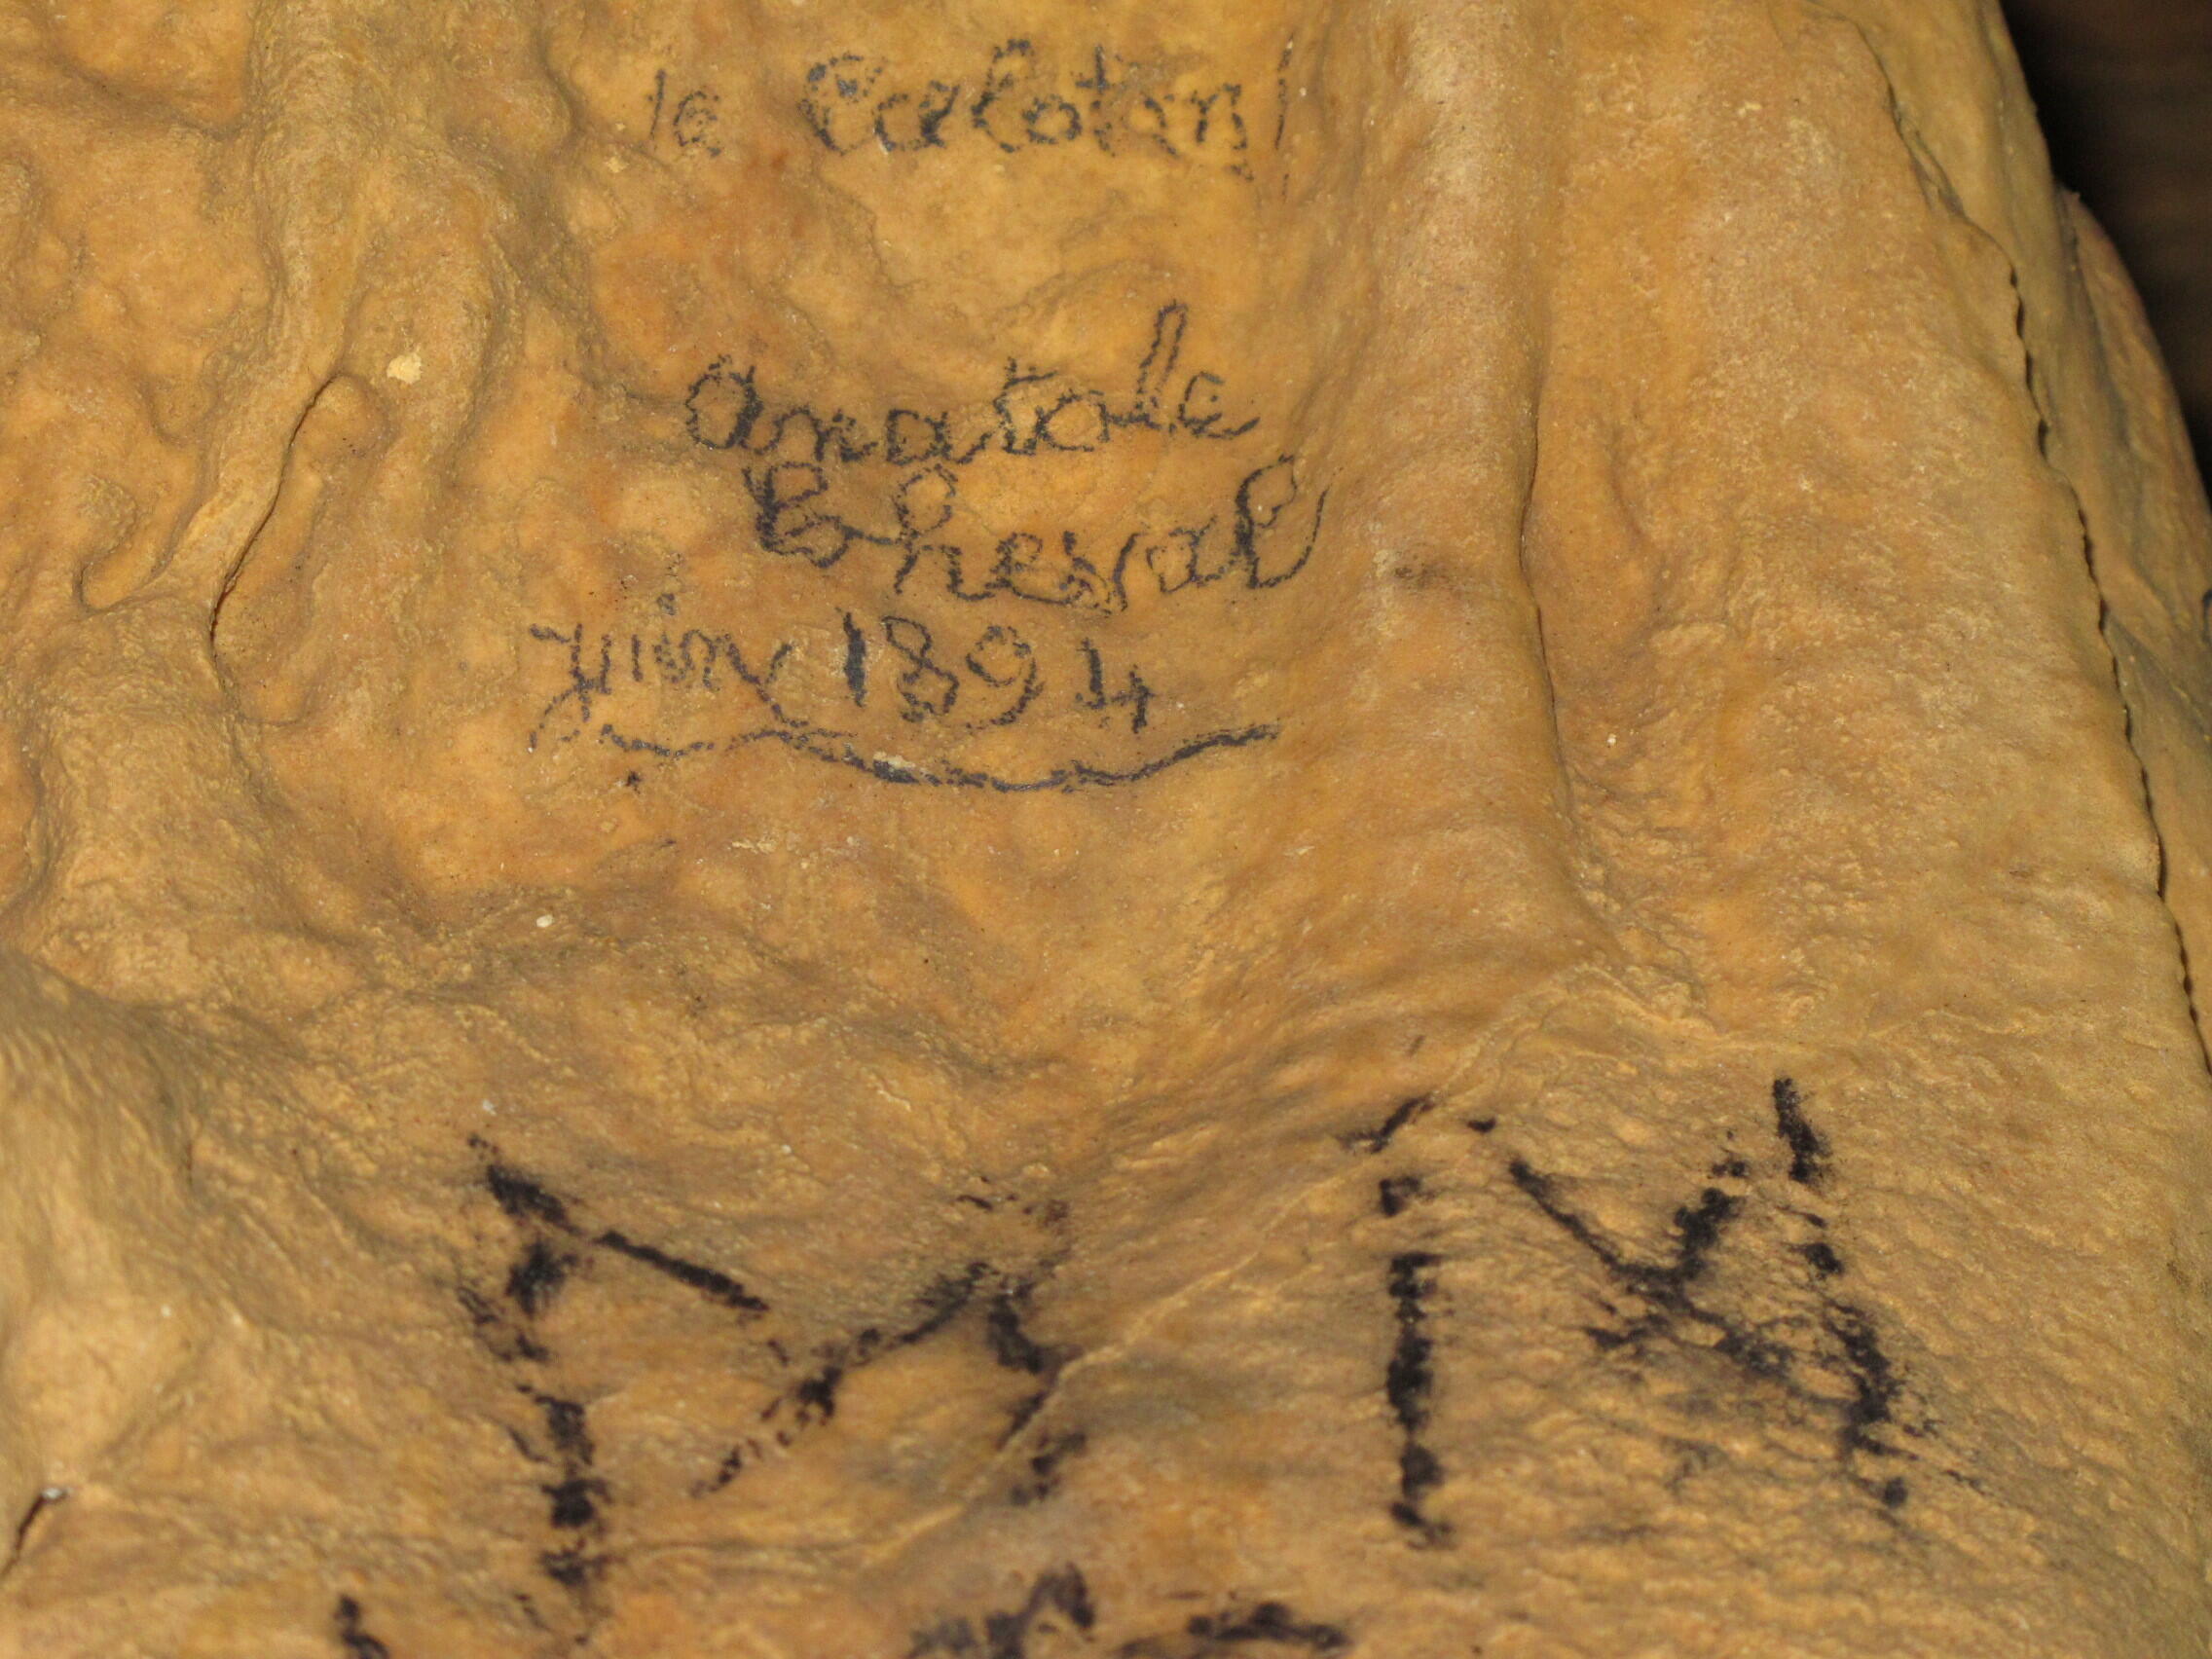 le Calotin
anatole
Cheval
juin 1894
M M